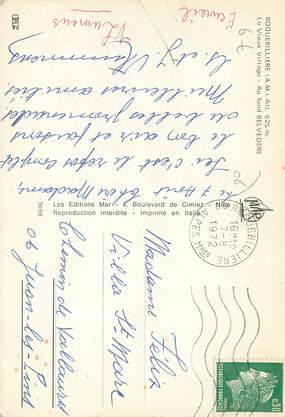 ROQUEBILLIERE (A.M.) Alt. 625 m.
Le Vieux Village - Au fond BELVEDERE
le 7 Août Chère Madame,
Ici c'est le repos complet
le bon air et faisons
de belles promenades,
Meilleures amitiés
S. et J.
Les Editions Mar - Boulevard de Cimiez - Nice
Reproduction interdite - Imprimé en Italie
MAR
16H30
7-8
1972
Madame Felix
Villa St Marc
Chemin de Vallauris
06 Juan-les-Pins
0,30
REPUBLIQUE FRANCAISE
06